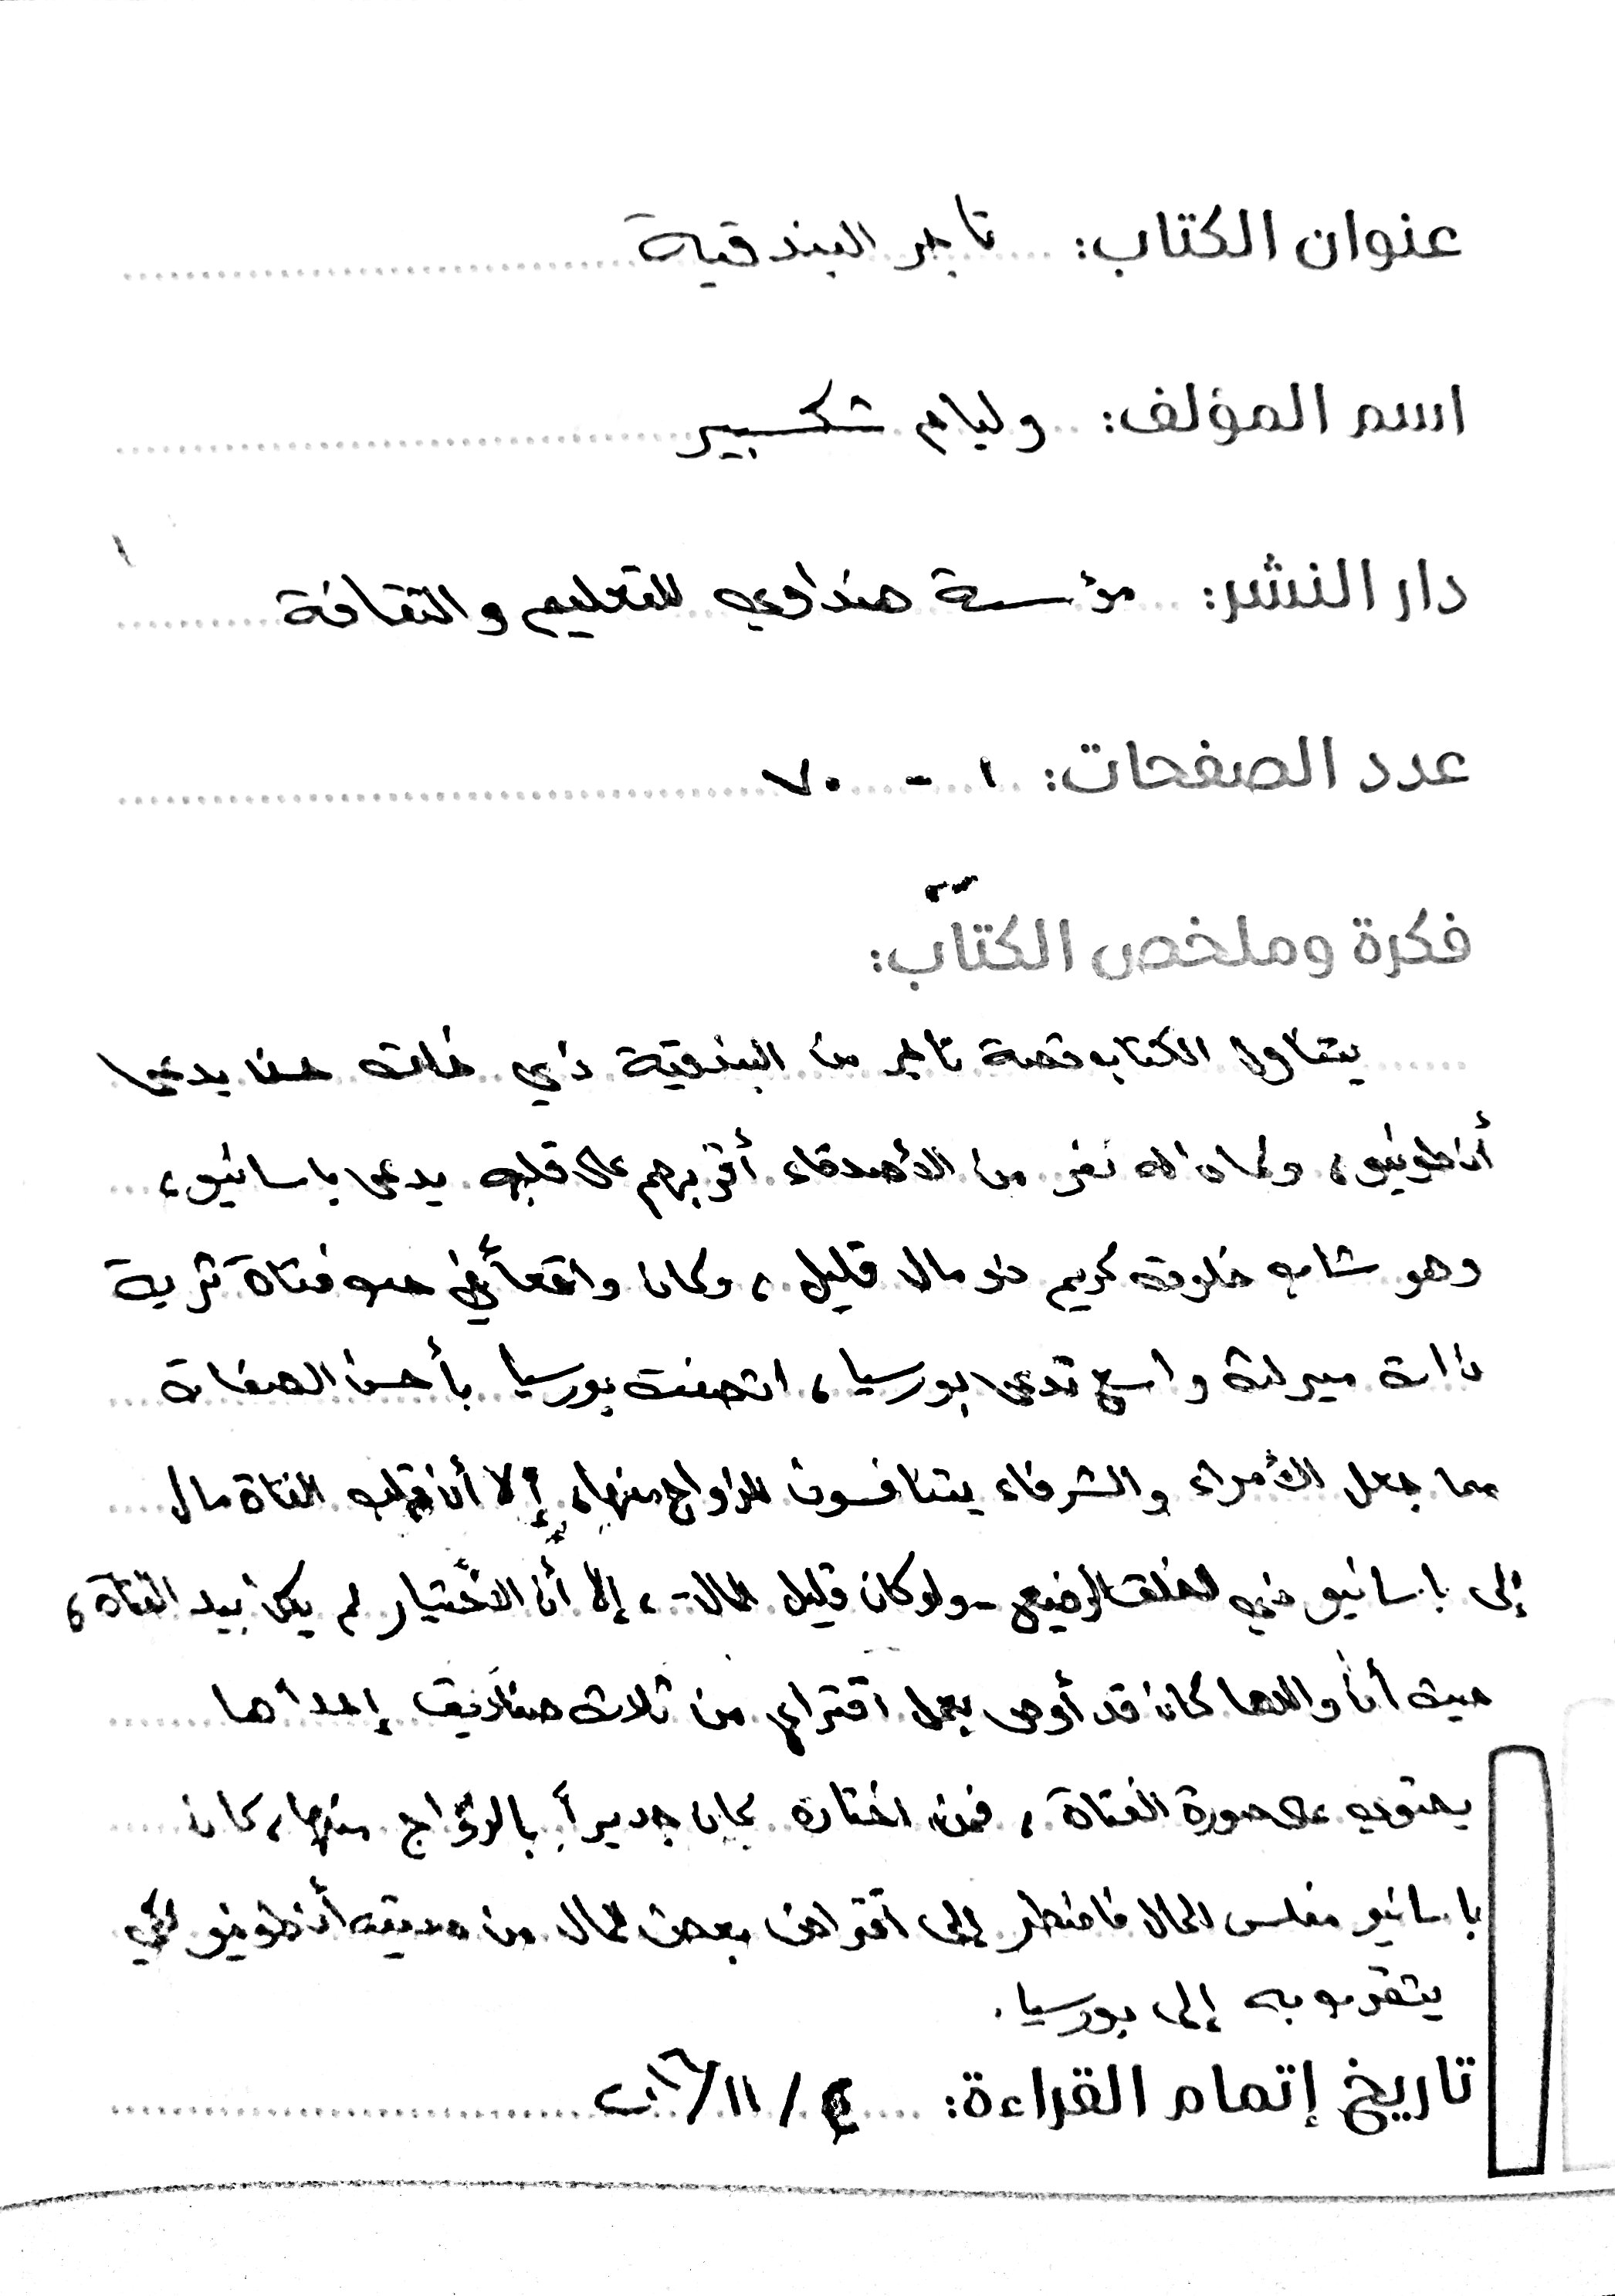 عنوان الكتاب: تاجر البندقية
اسم المؤلف: وليام شكسبير
دار النشر: مؤسسة هنداوي للتعليم والثقافة
عدد الصفحات: ١ - ٧٠
فكرة وملخص الكتاب:
يتناول الكتاب قصة تاجر من البندقية ذي خلق حسن يدعى
أنطونيو، وكان له نفر من الأصدقاء أقربهم على قلبه يدعى باسانيو،
وهو شاب خلوق كريم ذو مال قليل، وكان واقعاً في حب فتاة ثرية
ذات ميراث واسع تدعى بورسيا، اتصفت بورسيا بأحسن الصفات
مما جعل الأمراء والشرفاء يتنافسون للزواج منها، إلا أن قلب الفتاة مال
إلى باسانيو ذي الخلق الرفيع - ولو كان قليل المال -، إلا أن الاختيار لم يكن بيد الفتاة،
حيث أن والدها كان قد أوصى بعمل اقتراع من ثلاث صناديق إحداها
يحتوي على صورة الفتاة، فمن اختاره كان جديراً بالزواج منها، كان
باسانيو مفلس المال فاضطر إلى اقتراض بعض المال من صديقه أنطونيو لكي
يتقرب به إلى بورسيا.
تاريخ إتمام القراءة: / ١١ / ٢٠١٦